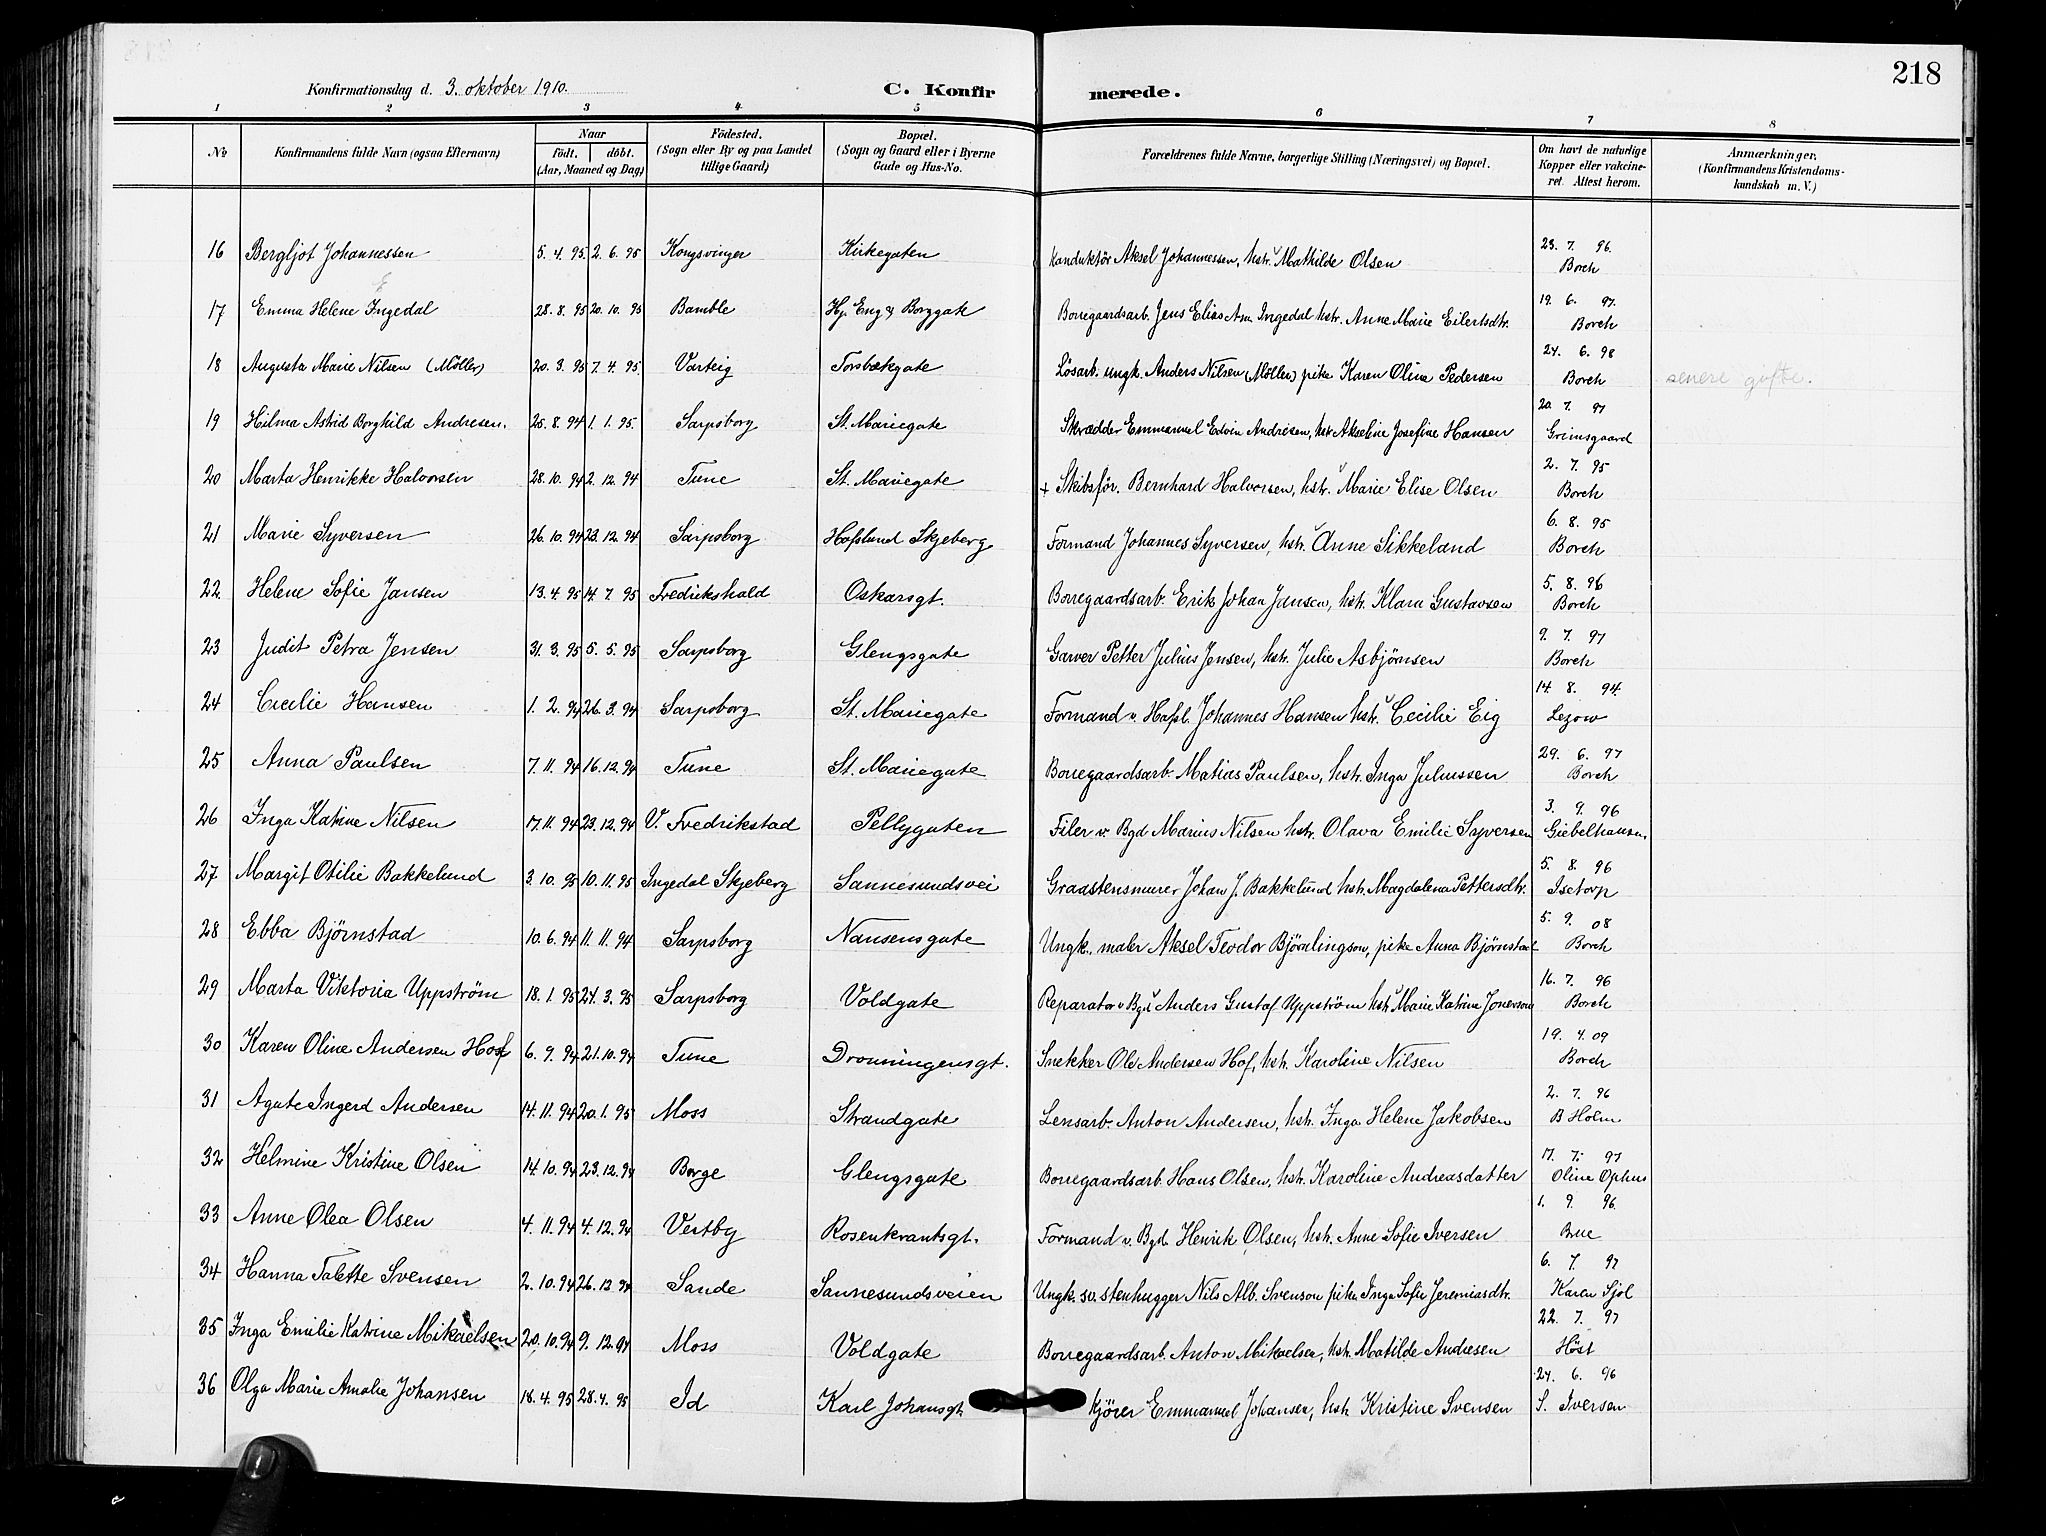 218
Konfirmationsdag d. 3. oktober 1910. C. Konfir merede.
1 2 3 4 5 6 7 8
No Konfirmandens fulde Navn (ogsaa Efternavn) Naar födt. döbt. (Aar, Maaned og Dag) Födested. (Sogn eller By og paa Landet tillige Gaard) Bopæl. (Sogn og Gaard eller i Byerne Gade og Hus-No. Forældrenes fulde Navne, borgerlige Stilling (Næringsvei) og Bopæl. Om havt de naturlige Kopper eller vakcineret. Attest herom. Anmærkninger. (Konfirmandens Kristendomskundskab m. V.)
16 Bergljot Johannessen 5. 4. 95 2. 6. 95 Kongsvinger Kirkegaten Konduktör Aksel Johannessen, hstr. Mathilde Olsen 23. 7. 96. Borch
17 Emma Helene Ingedal 28. 8. 95 20. 10. 95 Bamble Hj. Eng & Borggate Borregaardsarb. Jens Elias Asm. Ingedal hstr. Anne Marie Eilertsdtr. 19. 6. 97. Borch
18 Augusta Marie Nilsen (Möller) 20. 3. 95 7. 4. 95. Varteig Torsbækgate Lösarb. ungk. Anders Nilsen (Möller) pike Karen Oline Pedersen 24. 6. 98 Borch senere gifte.
19 Hilma Astrid Borghild Andresen. 25. 8. 94 1. 1. 95. Sarpsborg St. Mariegate Skrædder Emmanuel Edvin Andresen, hstr. Akseline Josefine Hansen 20. 7. 97 Grimsgaard
20 Marta Henrikke Halvorsen 28. 10. 94 2. 12. 94 Tune St. Mariegate + Skibsför. Bernhard Halvorsen, hstr. Marie Elise Olsen 2. 7. 95 Borch
21 Marie Syversen 26. 10. 94 23. 12. 94 Sarpsborg Hafslund Skjeberg Formand Johannes Syversen, hstr. Anne Sikkeland 6. 8. 95 Borch
22 Helene Sofie Jansen 13. 4. 95 14. 7. 95 Fredrikshald Oskarsgt. Borregaardsarb. Erik Johan Jansen, hstr. Klara Gustavsen 5. 8. 96 Borch
23 Judit Petra Jensen 31. 3. 95 5. 5. 95 Sarpsborg Glengsgate Garver Petter Julius Jensen, hstr. Julie Asbjörnsen 9. 7. 97 Borch
24 Cecilie Hansen 1. 2. 94 26. 3. 94 Sarpsborg St. Mariegate Formand v. Hafsl. Johannes Hansen hstr. Cecilie Eig 14. 8. 94. Lezow
25 Anna Paulsen 7. 11. 94 16. 12. 94 Tune St. Mariegate Borregaardsarb. Matias Paulsen, hstr. Inga Juliussen 29. 6. 97 Borch
26 Inga Katrine Nilsen 17. 11. 94 23. 12. 94 V. Fredrikstad Pellygaten Filer v. Bgd Marius Nilsen hstr. Olava Emilie Syversen 3. 9. 96 Giebelhausen.
27 Margit Otilie Bakkelund 3. 10. 95 10. 11. 95 Ingedal Skjeberg Sannesundsvei Graastensmurer Johan J. Bakkelund hstr. Magdalena Pettersdtr. 5. 8. 96 Isetorp
28 Ebba Bjørnstad 10. 6. 94 11. 11. 94 Sarpsborg Nansensgate Ungk. maler Aksel Teodor Björnlingson, pike Anna Bjørnstad 5. 9. 08 Borch
29 Marta Viktoria Uppström 18. 1. 95 24. 3. 95 Sarpsborg Voldgate Reparatör v Bgd Anders Gustaf Uppström hstr. Marie Katrine Jonersson 16. 7. 96 Borch
30 Karen Oline Andersen Hof 6. 9. 94 21. 10. 94 Tune Dronningensgt. Snekker Ole Andersen Hof, hstr. Karoline Nilsen 19. 4. 09 Borch
31 Agate Ingerd Andersen 14. 11. 94 20. 1. 95 Moss Strandgate Lensarb. Anton Andersen, hstr. Inga Helene Jakobsen 2. 7. 96 B Holm
32 Helmine Kristine Olsen 14. 10. 94 23. 12. 94 Borge Glengsgate Borregaardsarb. Hans Olsen, hstr. Karoline Andreasdatter 17. 7. 97 Oline Ophus
33 Anne Olea Olsen 4. 11. 94 4. 12. 94 Vestby Rosenkrantsgt. Formand v. Bgd. Henrik Olsen, hstr. Anne Sofie Iversen 1. 9. 96 Bue
34 Hanna Talette Svensen 2. 10. 94 26. 12 94 Sande Sannesundsveien Ungk. sv. stenhugger Nils Alb. Svenson pike Inga Sofie Jeremiasdtr. 6. 7. 97 Karen Sjöl
35 Inga Emilie Katrine Mikaelsen 20. 10. 94 9. 12. 94 Moss Voldgate Borregaardsarb. Anton Mikaelsen, hstr. Matilde Andresen 22. 7. 97 Höst
36 Olga Marie Amalie Johansen 18. 4. 95 28. 4. 95 Id Karl Johansgt. Kjörer Emmanuel Johansen, hstr. Kristine Svensen 24. 6. 96 S. Iversen